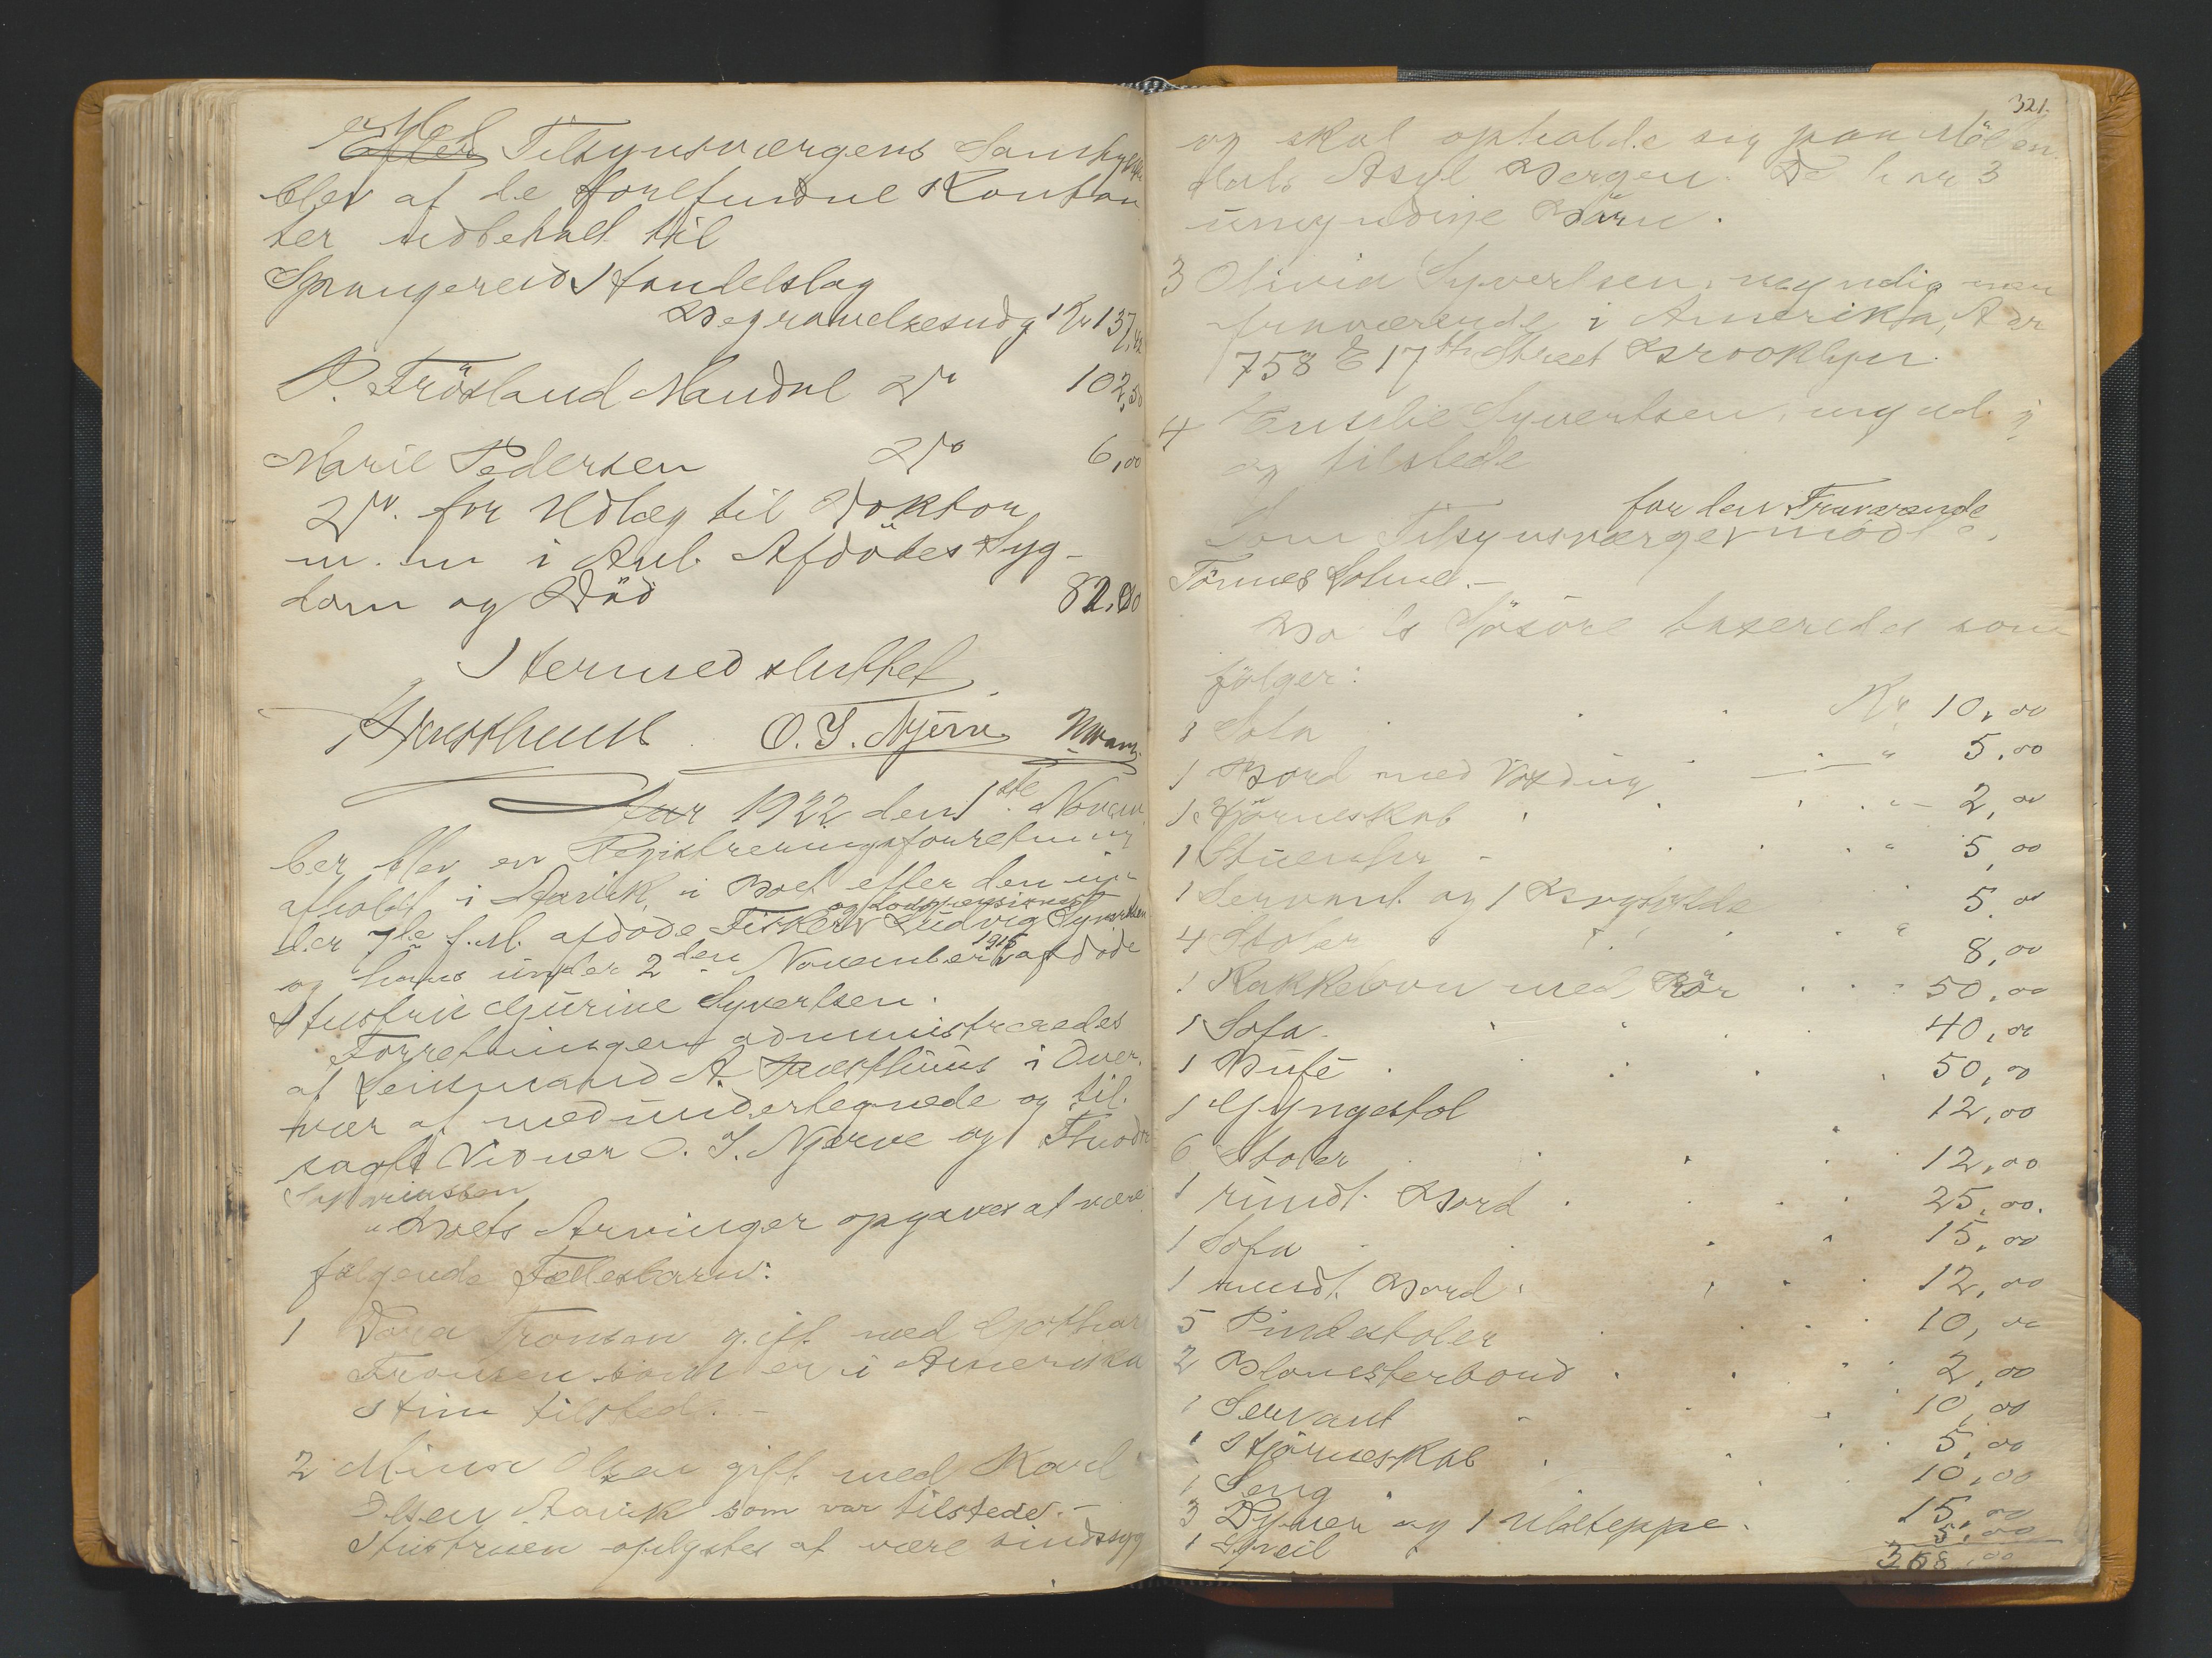 Med
Efter Tilsynsværgens Samtykke
blev af de forefundne Kontan
ter udbehol. til
Spangereid Handelslag
Begravelsesudg Kr 137,42
P. Tröiland Mandal Do 102,50
Marie Pedersen Do 6,00
Do. for Udlæg til Doktor
m. m i Anl. Afdödes Syg-
dom og Död 82.00
Hermed sluttet
O. I. Njerve
Aar 1922 den 1ste Novem
ber blev en Registreringsforretning
afholdt i Aavik i Boet efter den un-
der 7de f. M. afdöde Fisker og Lodspensionist Ludvig Syvertsen
og hans under 2den November 1915 afdöde
Hustru Gurine Syvertsen.
Forretningen administreredes
af Lensmand A. Presthuus i Over-
vær af medundertegnede og til-
sagte Vidner O. I. Njerve og Theodor
Boets Arvinger opgaves at være
følgende Fællesbarn:
1 Dora Tronsen gift med Gothar
Tronsen som er i Amerika
Hun tilstede. -
2 Mina Olsen gift med Karl
Olsen Aavik som var tilstede. -
Hustruen oplystes at være sindssyg
321.
og skal opholde sig paa Möllen
dals Asyl Bergen. De har 3
umyndige Börn.
3 Olivia Syvertsen, myndig men
fraværende i Amerika, Adr
758 E 17th Street Brooklyn.
4 Emilie Syvertsen, myndig
og tilstede
for den Fraværende
Som Tilsynsværge mødte
Tönnes Holme. -
Bo ts Lösöre taxeredes som
fölger:
1 Sofa Kr 10,00
1 Bord med Voxdug " 5,00
1 Hjörneskab " 2,00
1 Stueuhr " 5,00
1 Servant og 1 5,00
4 Stoler " 8,00
1 Kakkelovn med Rör 50,00
1 Sofa 40,00
1 Bufe 50,00
1 Gyngestol 12,00
6 Stoler 12,00
1 rundt Bord 25,00.
1 Sofa 15,00
1 rundt Bord 12,00
5 Pindestoler 10,00
2 Blomsterbord 2,00
1 Servant 10,00
1 Hjörneskab 5,00
1 Seng 10,00
3 Dyner og 1 Uldteppe 15,00
1 Speil 5,00